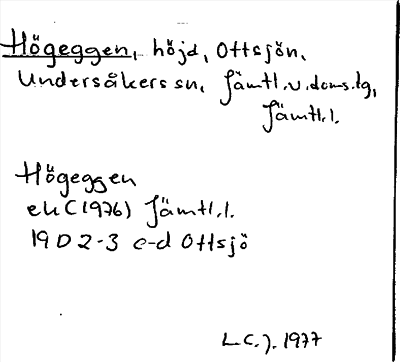 Högeggen, höjd, Ottsjön,
Undersåkers sn, Jämtl. v. doms.lg,
Jämtl. l.
Högeggen
ek (1976) Jämtl. l.
19 D 2-3 c-d Ottsjö
L.C.J. 1977